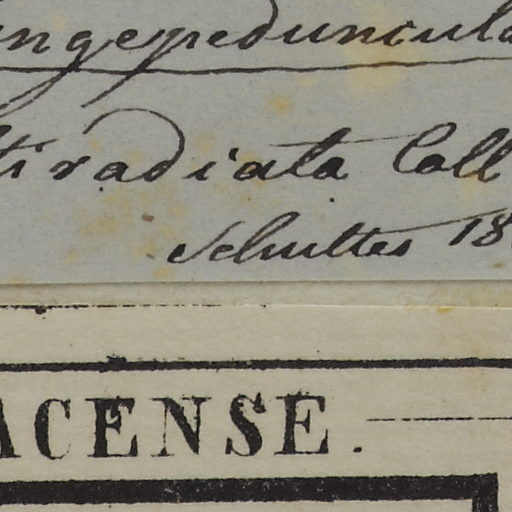 ngepeduncula
tiradiata Coll
Schultes 18
ACENSE.